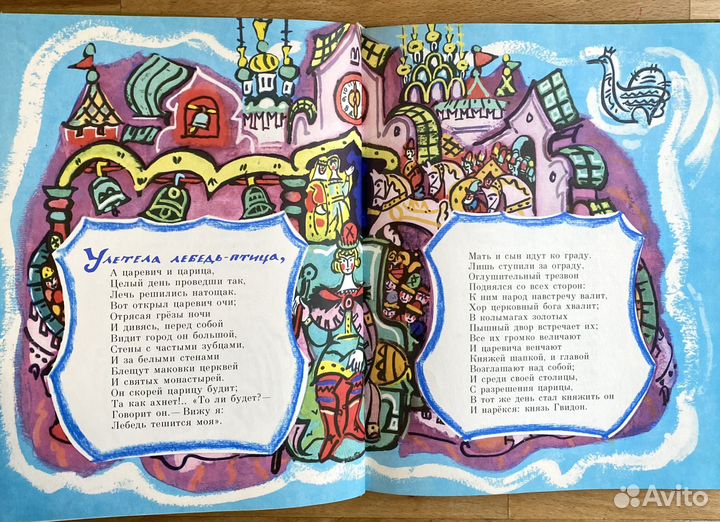 Улетела лебедь-птица,
А царевич и царица,
Целый день проведши так,
Лечь решились натощак.
Вот открыл царевич очи;
Отрясая грёзы ночи
И дивясь, перед собой
Видит город он большой,
Стены с частыми зубцами,
И за белыми стенами
Блещут маковки церквей
И святых монастырей.
Он скорей царицу будит;
Та как ахнет!.. «То ли будет?—
Говорит он.— Вижу я:
Лебедь тешится моя».
Мать и сын идут ко граду.
Лишь ступили за ограду,
Оглушительный трезвон
Поднялся со всех сторон:
К ним народ навстречу валит,
Хор церковный бога хвалит;
В колымагах золотых
Пышный двор встречает их;
Все их громко величают
И царевича венчают
Княжей шапкой, и главой
Возглашают над собой;
И среди своей столицы,
С разрешения царицы,
В тот же день стал княжить он
И нарёкся: князь Гвидон.
Avito